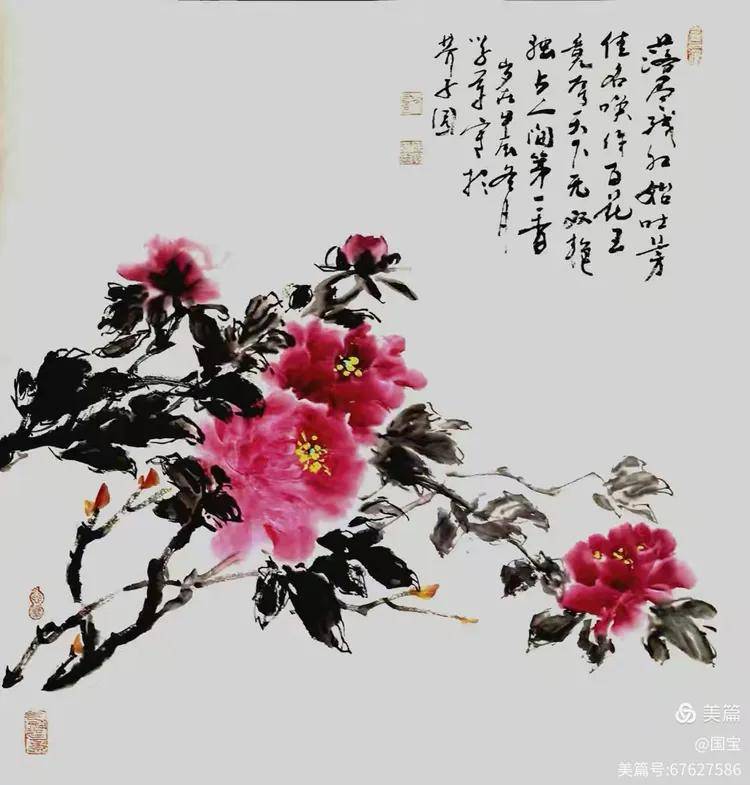 落尽残红始吐芳
佳名唤作百花王
竞夸天下无双艳
独占人间第一香
岁在甲辰冬月
学军写于
芥子园
美篇
@国宝
美篇号:67627586